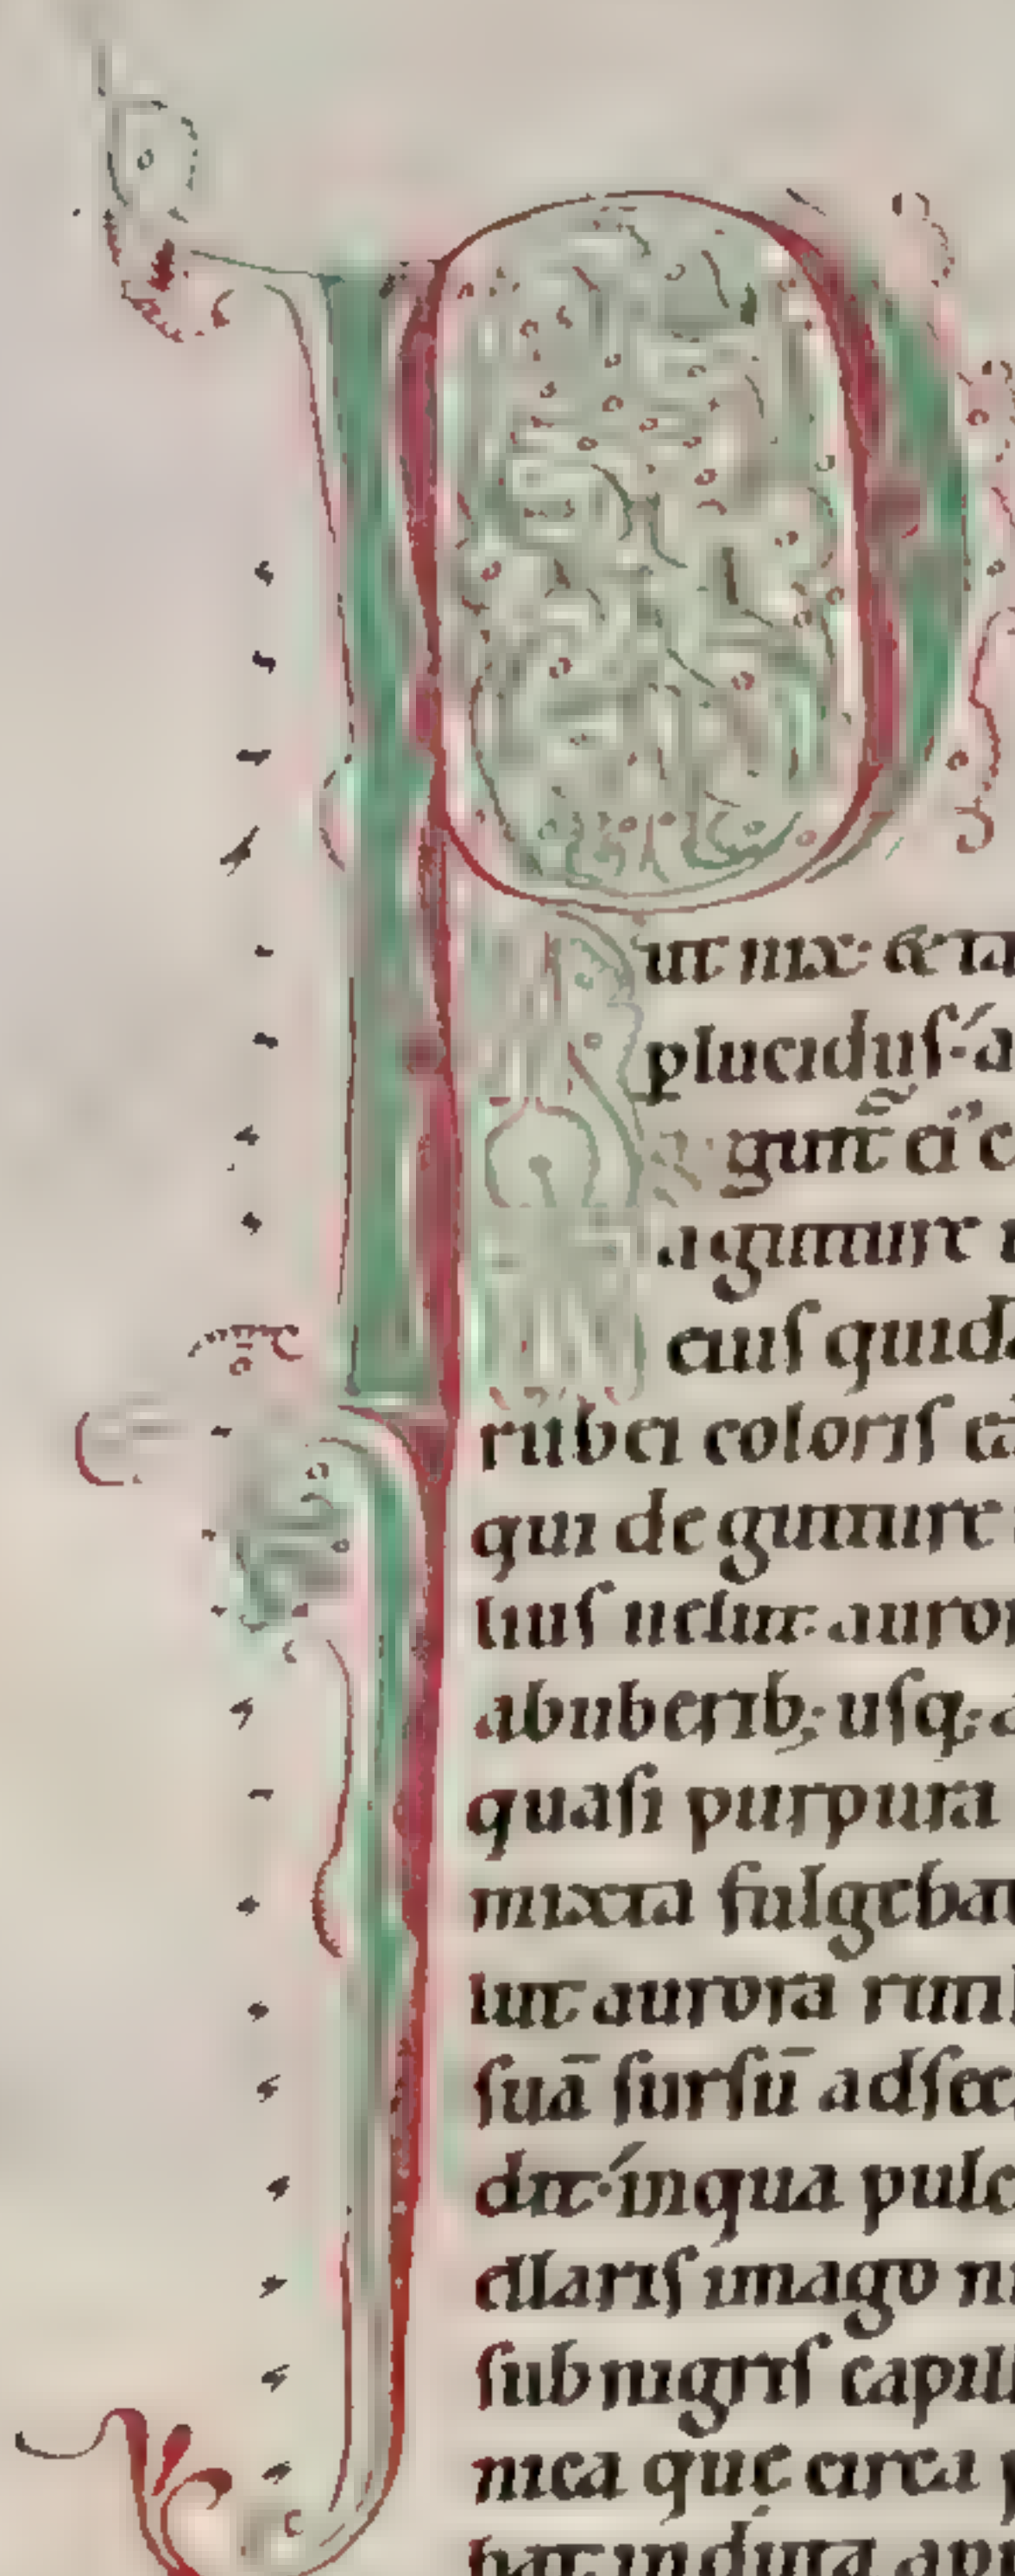 P
ut nix: & ta
plucidus: a
gunt̄ ei c
a gutture
eius quida
rubei coloris
qui de gutture
lius uelut auror
ab uberib; usq; a
quasi purpura
mixta fulgebat
lut aurora ruti
suā sursū ad sec
dit: in qua pulc
ellaris imago ni
sub nigris capill
nica que circa p
bat induta app